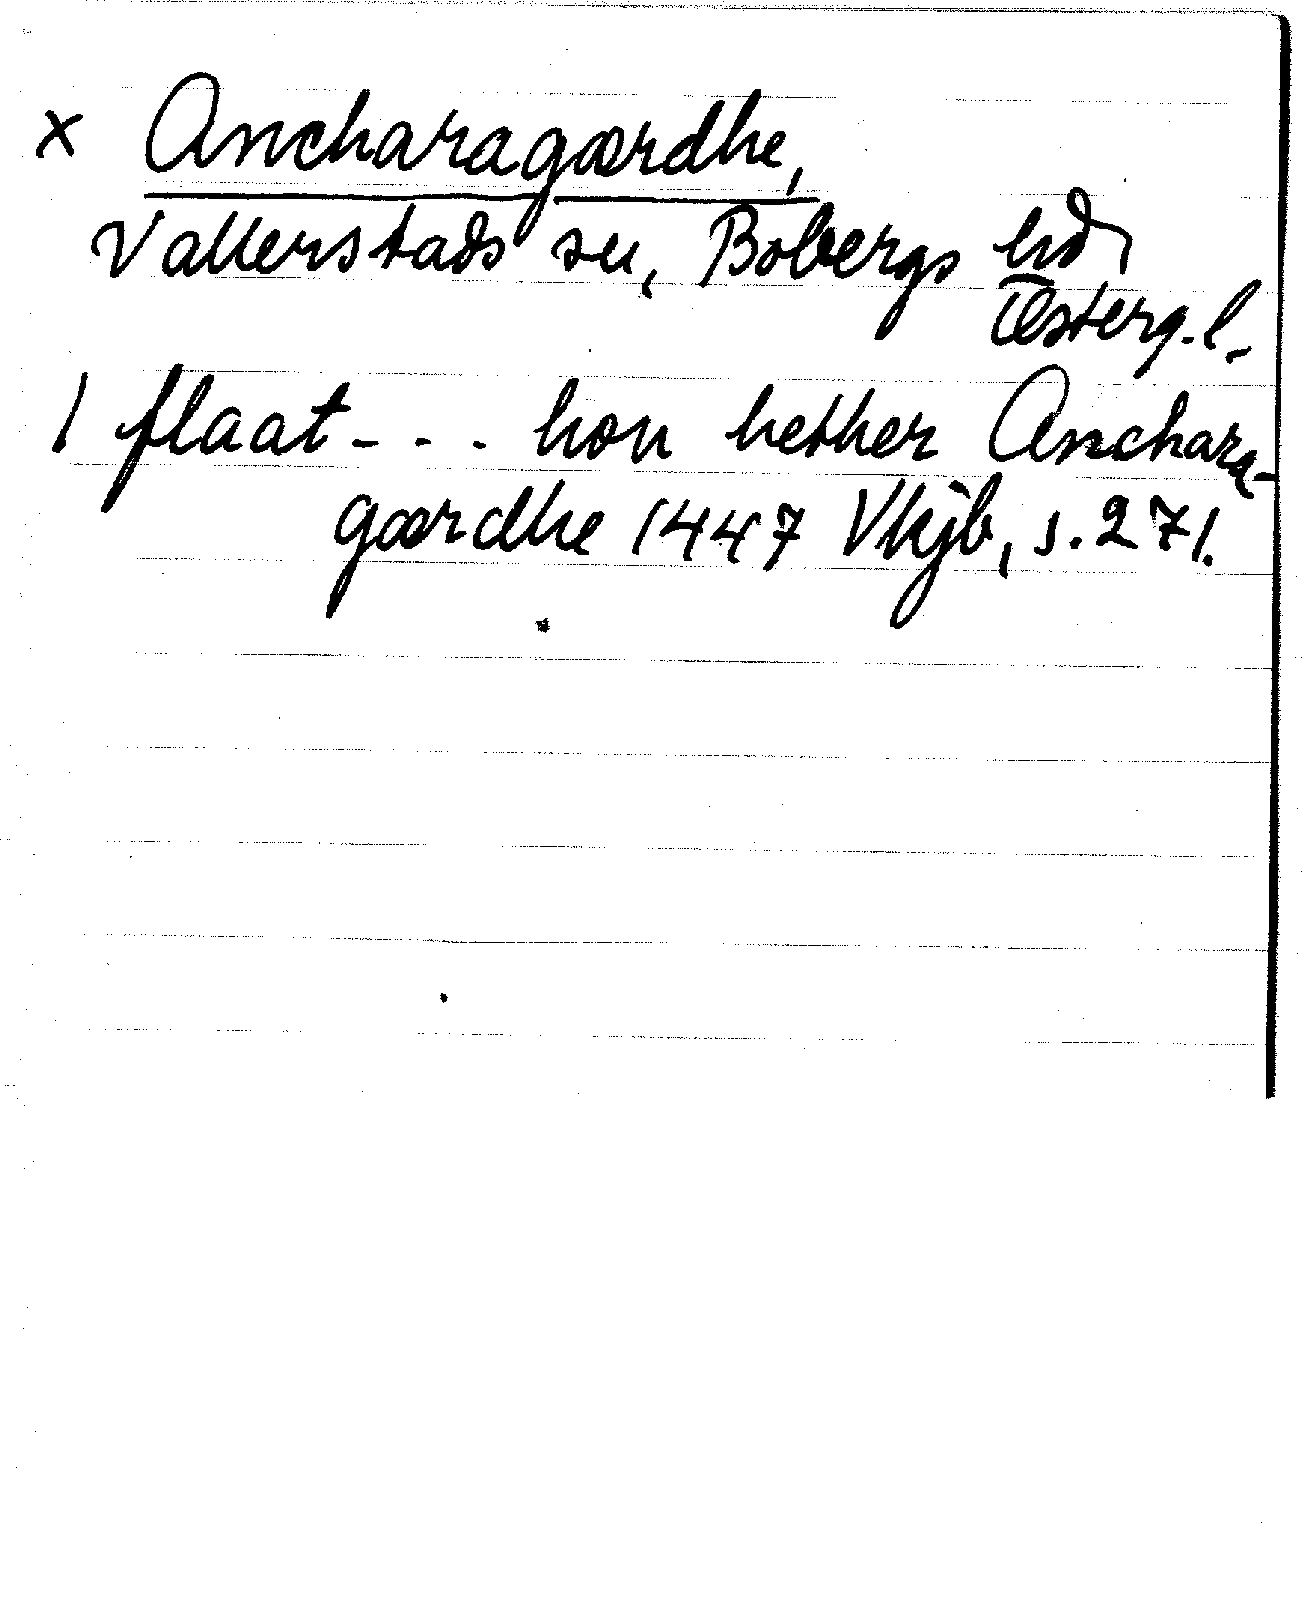 x Ancharagærdhe,
Vallerstads sn, Bobergs hd,
Österg. l.
1 flaat - - - hon hether Anchara-
gærdhe 1447 Vkjb, s. 271.